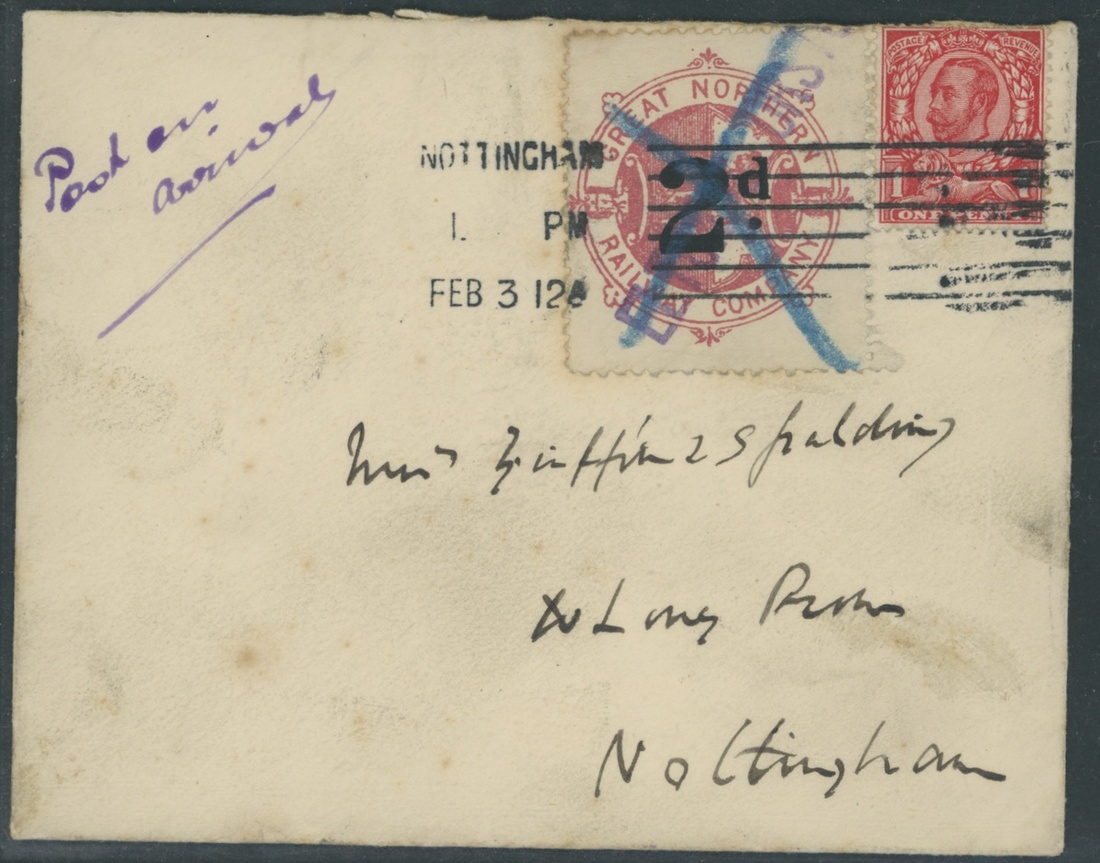 Post on
arrival
NOTTINGHAM
1. PM
FEB 3 12
GREAT NORTHERN
RAILWAY COMPANY
2d.
POSTAGE REVENUE
ONE PENNY
3
Spalding
Long Row
Nottingham